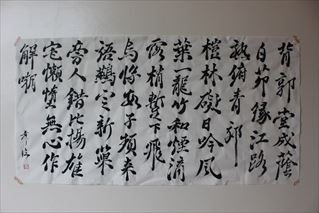 背郭堂成蔭
白茆緣江路
熟俯青郊
榿林礙日吟風
葉籠竹和煙滴
露梢暫下飛
烏將數子頻來
語鷰定新巢
旁人錯比揚雄
宅懶惰無心作
解嘲